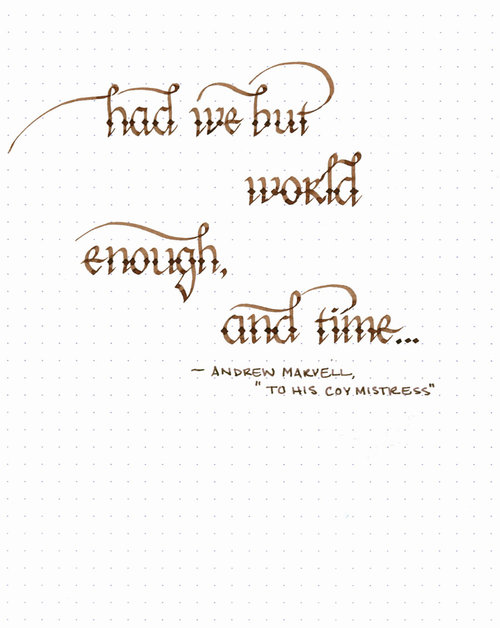 had we but
world
enough,
and time...
— ANDREW MARVELL,
"TO HIS COY MISTRESS"